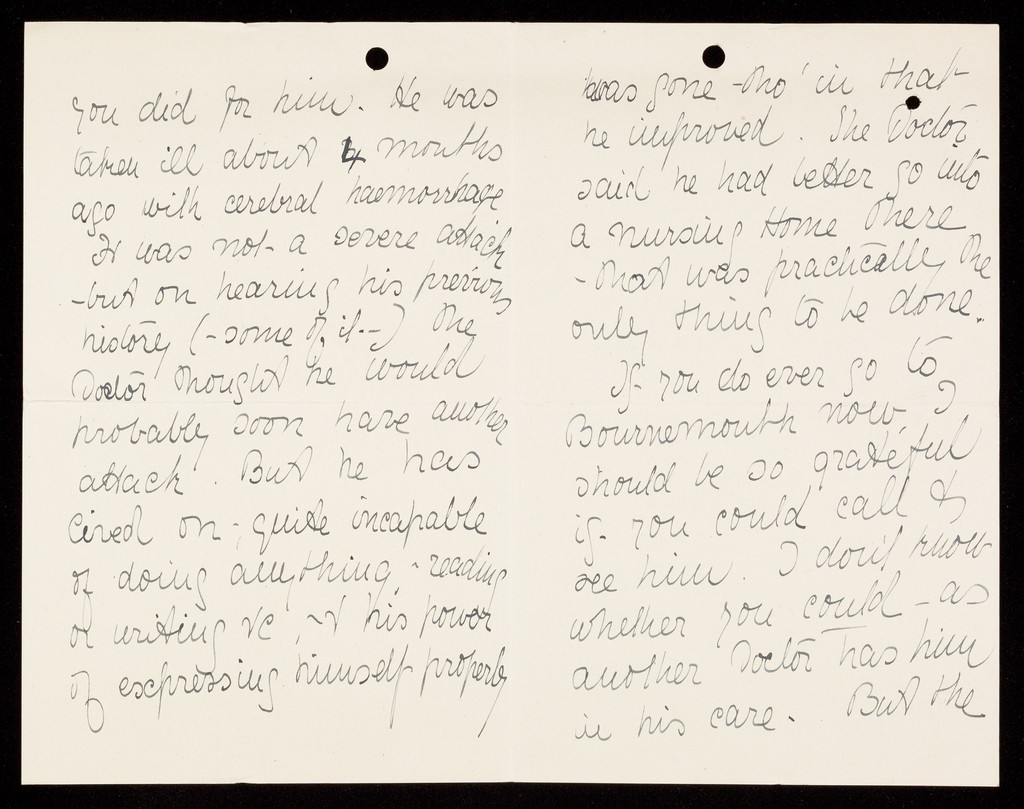 you did for him. He was
taken ill about 4 months
ago with cerebral haemorrhage
It was not a severe attack
-but on hearing his previous
history (-some of it--) the
Doctor thought he would
probably soon have another
attack. But he has
lived on; quite incapable
of doing anything, - reading
or writing &c, - & his power
of expressing himself properly
was gone - tho' in that
he improved. The Doctor
said he had better go into
a Nursing Home there
- that was practically the
only thing to be done.
If you do ever go to
Bournemouth now, I
should be so grateful
if you could call &
see him. I don't know
whether you could - as
another Doctor has him
in his care. But the